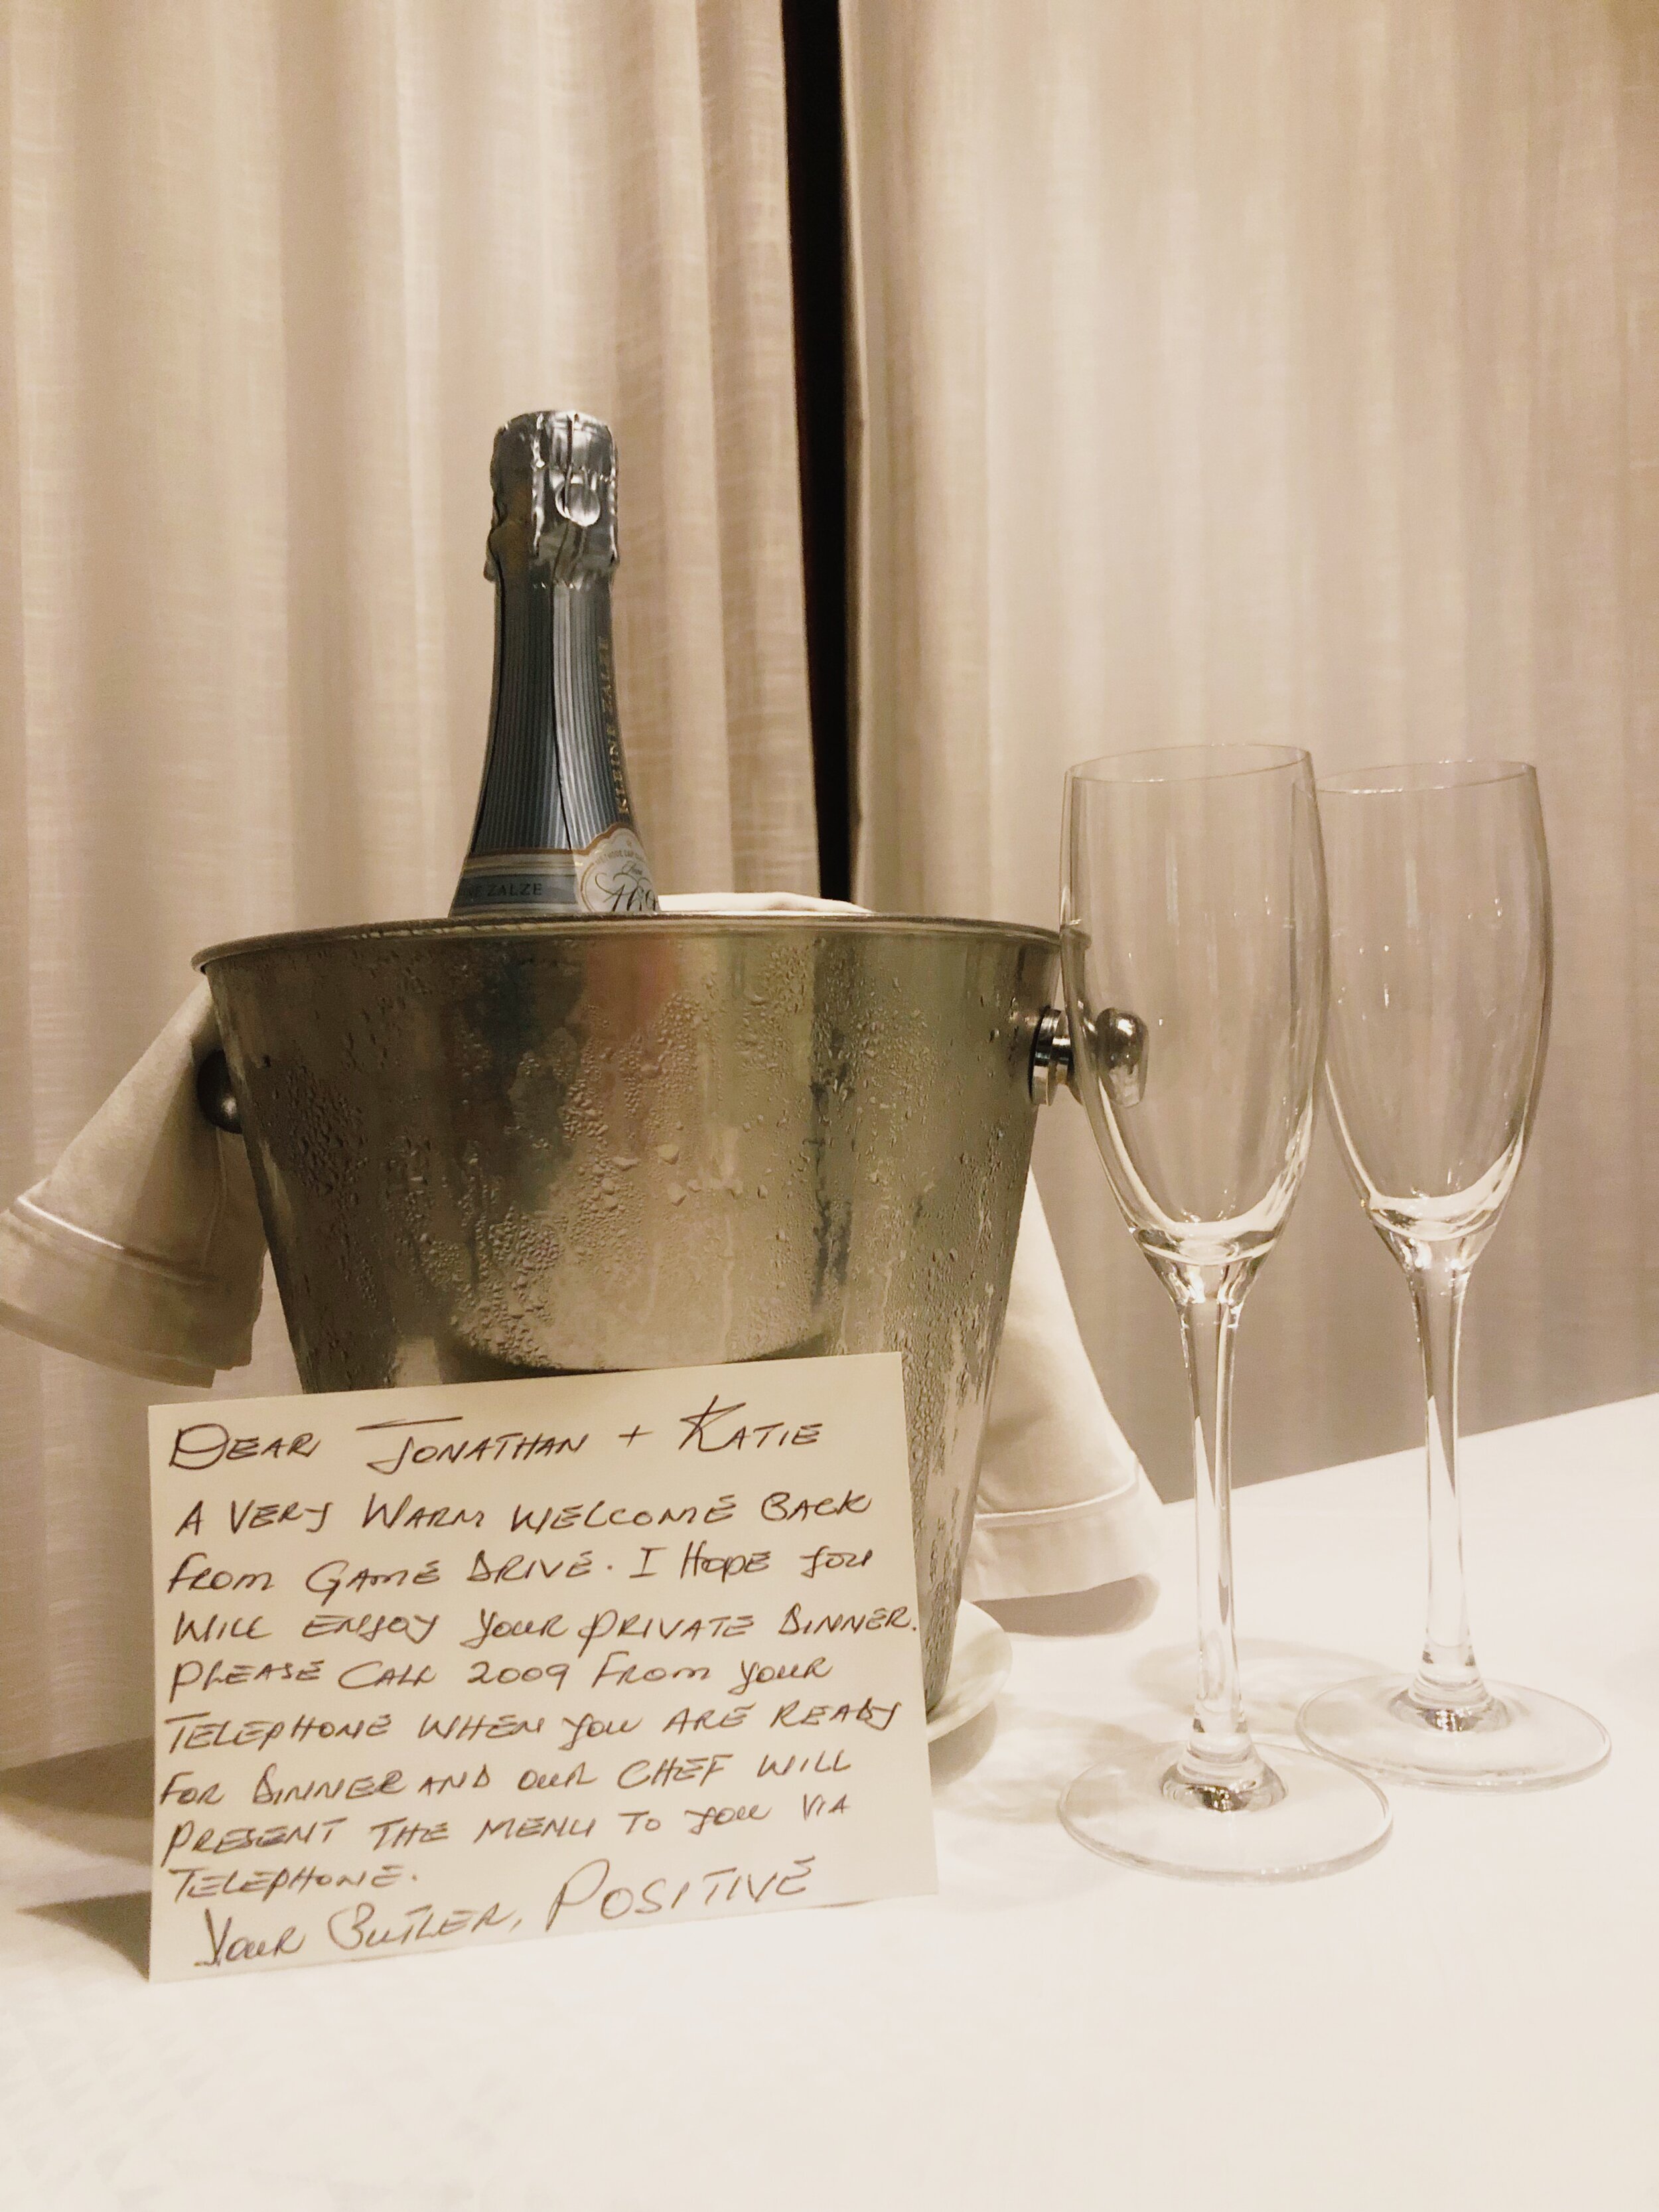 KLEINE ZALZE
ZALZE
DEAR JONATHAN + KATIE
A VERY WARM WELCOME BACK
FROM GAME DRIVE. I HOPE YOU
WILL ENJOY YOUR PRIVATE DINNER.
PLEASE CALL 2009 FROM YOUR
TELEPHONE WHEN YOU ARE READY
FOR DINNER AND OUR CHEF WILL
PRESENT THE MENU TO YOU VIA
TELEPHONE.
YOUR BUTLER, POSITIVE